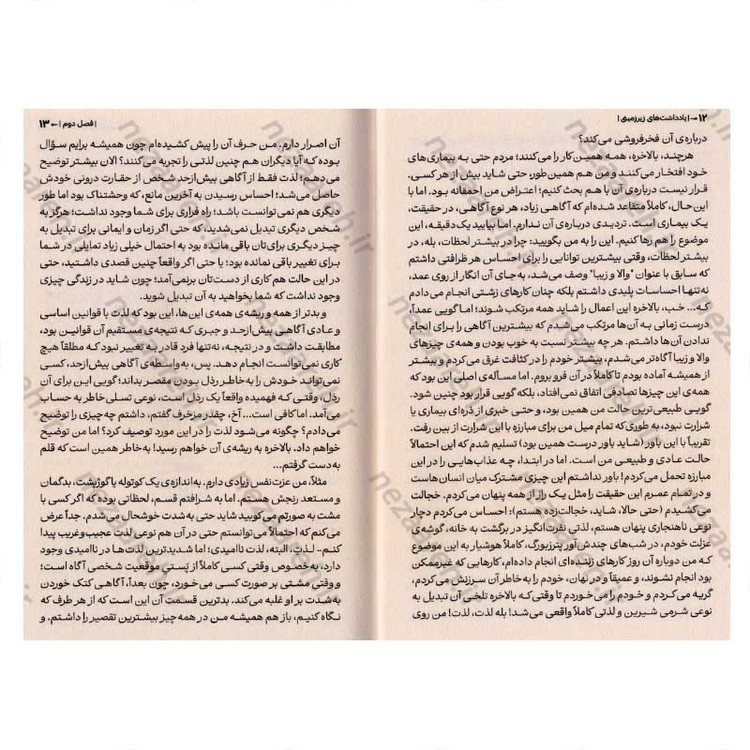 ۱۲ → | یادداشت‌های زیرزمینی |
درباره‌ی آن فخرفروشی می‌کند؟
هرچند، بالاخره، همه همین کار را می‌کنند؛ مردم حتی به بیماری‌های
خود افتخار می‌کنند و من هم همین‌طور، حتی شاید بیش از هر کسی.
قرار نیست درباره‌ی آن با هم بحث کنیم؛ اعتراض من احمقانه بود. اما با
این حال، کاملاً متقاعد شده‌ام که آگاهی زیاد، هر نوع آگاهی، در حقیقت،
یک بیماری است. تردیدی درباره‌ی آن ندارم. اما بیایید یک دقیقه، این
موضوع را هم رها کنیم. این را به من بگویید: چرا در بیشتر لحظات، بله، در
لحظات، وقتی بیشترین توانایی را برای احساس هر ظرافتی داشتم
که سابق با عنوان "والا و زیبا" وصف می‌شد، به‌جای آن انگار از روی عمد،
نه‌تنها احساسات پلیدی داشتم بلکه چنان کارهای زشتی انجام می‌دادم
که... خب، بالاخره این اعمال را شاید همه مرتکب شوند؛ اما گویی عمداً،
درست زمانی به آن‌ها مرتکب می‌شدم که بیشترین آگاهی را برای انجام
ندادن آن‌ها داشتم. هر چه بیشتر نسبت به خوب بودن و همه‌ی چیزهای
والا و زیبا آگاه‌تر می‌شدم، بیشتر خودم را در کثافت غرق می‌کردم و بیشتر
از همیشه آماده بودم تا کاملاً در آن فرو بروم. اما مسأله‌ی اصلی این بود که
همه‌ی این چیزها تصادفی اتفاق نمی‌افتاد، بلکه گویی قرار بود چنین شود.
گویی طبیعی‌ترین حالت من همین بود، و حتی خبری از ذره‌ای بیماری یا
شرارت نبود، به طوری که تمام میل من برای مبارزه با این شرارت از بین رفت.
تقریباً با این باور (شاید باور درست همین بود) تسلیم شدم که این احتمالاً
حالت عادی و طبیعی من است. اما در ابتدا، چه عذاب‌هایی را در این
مبارزه تحمل می‌کردم! باور نداشتم این چیزی مشترک میان انسان‌هاست
و در تمام عمرم این حقیقت را مثل یک راز از همه پنهان می‌کردم. خجالت
می‌کشیدم (حتی حالا، شاید، خجالت‌زده هستم)؛ احساس می‌کردم دچار
نوعی ناهنجاری پنهان هستم، لذتی نفرت‌انگیز در برگشت به خانه، گوشه‌ی
عزلت خودم، در شب‌های چندش‌آور پترزبورگ، کاملاً هوشیار به این موضوع
که من دوباره آن روز کارهای زننده‌ای انجام داده‌ام، کارهایی که غیرممکن
بود انجام نشوند، و عمیقاً و در نهان، خودم را به‌خاطر آن سرزنش می‌کردم،
گریه می‌کردم و خودم را می‌خوردم تا وقتی که بالاخره تلخی آن تبدیل به
نوعی شرمی شیرین و لذتی کاملاً واقعی می‌شد! بله لذت، لذت! من روی
| فصل دوم | ← ۱۳
آن اصرار دارم. من حرف آن را پیش کشیده‌ام چون همیشه برایم سؤال
بوده که آیا دیگران هم چنین لذتی را تجربه می‌کنند؟ الان بیشتر توضیح
می‌دهم؛ لذت فقط از آگاهی بیش‌ازحد شخص از حقارت درونی خودش
حاصل می‌شد؛ احساس رسیدن به آخرین مانع، که وحشتناک بود اما طور
دیگری هم نمی‌توانست باشد؛ راه فراری برای شما وجود نداشت؛ هرگز به
شخص دیگری تبدیل نمی‌شدید، که حتی اگر زمان و ایمانی برای تبدیل به
چیز دیگری برای‌تان باقی مانده بود به احتمال خیلی زیاد تمایلی در شما
برای تغییر باقی نمانده بود؛ یا حتی اگر واقعاً چنین قصدی داشتید، حتی
در این حالت هم کاری از دست‌تان برنمی‌آمد؛ چون شاید در زندگی چیزی
وجود نداشت که شما بخواهید به آن تبدیل شوید.
و بدتر از همه و ریشه‌ی همه‌ی این‌ها، این بود که لذت با قوانین اساسی
و عادی آگاهی بیش‌ازحد و جبری که نتیجه‌ی مستقیم آن قوانین بود،
مطابقت داشت و در نتیجه، نه‌تنها فرد قادر به تغییر نبود که مطلقاً هیچ
کاری نمی‌توانست انجام دهد. پس، به‌واسطه‌ی آگاهی بیش‌ازحد، کسی
نمی‌تواند خودش را به‌خاطر رذل بودن مقصر بداند؛ گویی این برای آن
رذل، وقتی که فهمیده واقعاً یک رذل است، نوعی تسلی خاطر به حساب
می‌آمد. اما کافی است... آخ، چقدر مزخرف گفتم، داشتم چه‌چیزی را توضیح
می‌دادم؟ چگونه می‌شود لذت را در این مورد توصیف کرد؟ اما من توضیح
خواهم داد. بالاخره به ریشه‌ی آن خواهم رسید! به‌خاطر همین است که قلم
به دست گرفتم...
مثلاً، من عزت نفس زیادی دارم. به‌اندازه‌ی یک کوتوله یا گوژپشت، بدگمان
و مستعد رنجش هستم. اما به شرافتم قسم، لحظاتی بوده که اگر کسی با
مشت به صورتم می‌کوبید شاید حتی به‌شدت خوشحال می‌شدم. جداً عرض
می‌کنم که احتمالاً می‌توانستم حتی در آن هم نوعی لذت عجیب‌وغریب پیدا
کنم- لذت، البته، لذت ناامیدی؛ اما شدیدترین لذت‌ها در ناامیدی وجود
دارد، به‌خصوص وقتی کسی کاملاً از پستی موقعیت شخصی آگاه است؛
و وقتی مشتی بر صورت کسی می‌خورد، چون بعداً، آگاهی کتک خوردن
به‌شدت بر او غلبه می‌کند. بدترین قسمت آن این است که از هر طرف که
نگاه کنیم، باز هم همیشه من در همه‌چیز بیشترین تقصیر را داشتم، و